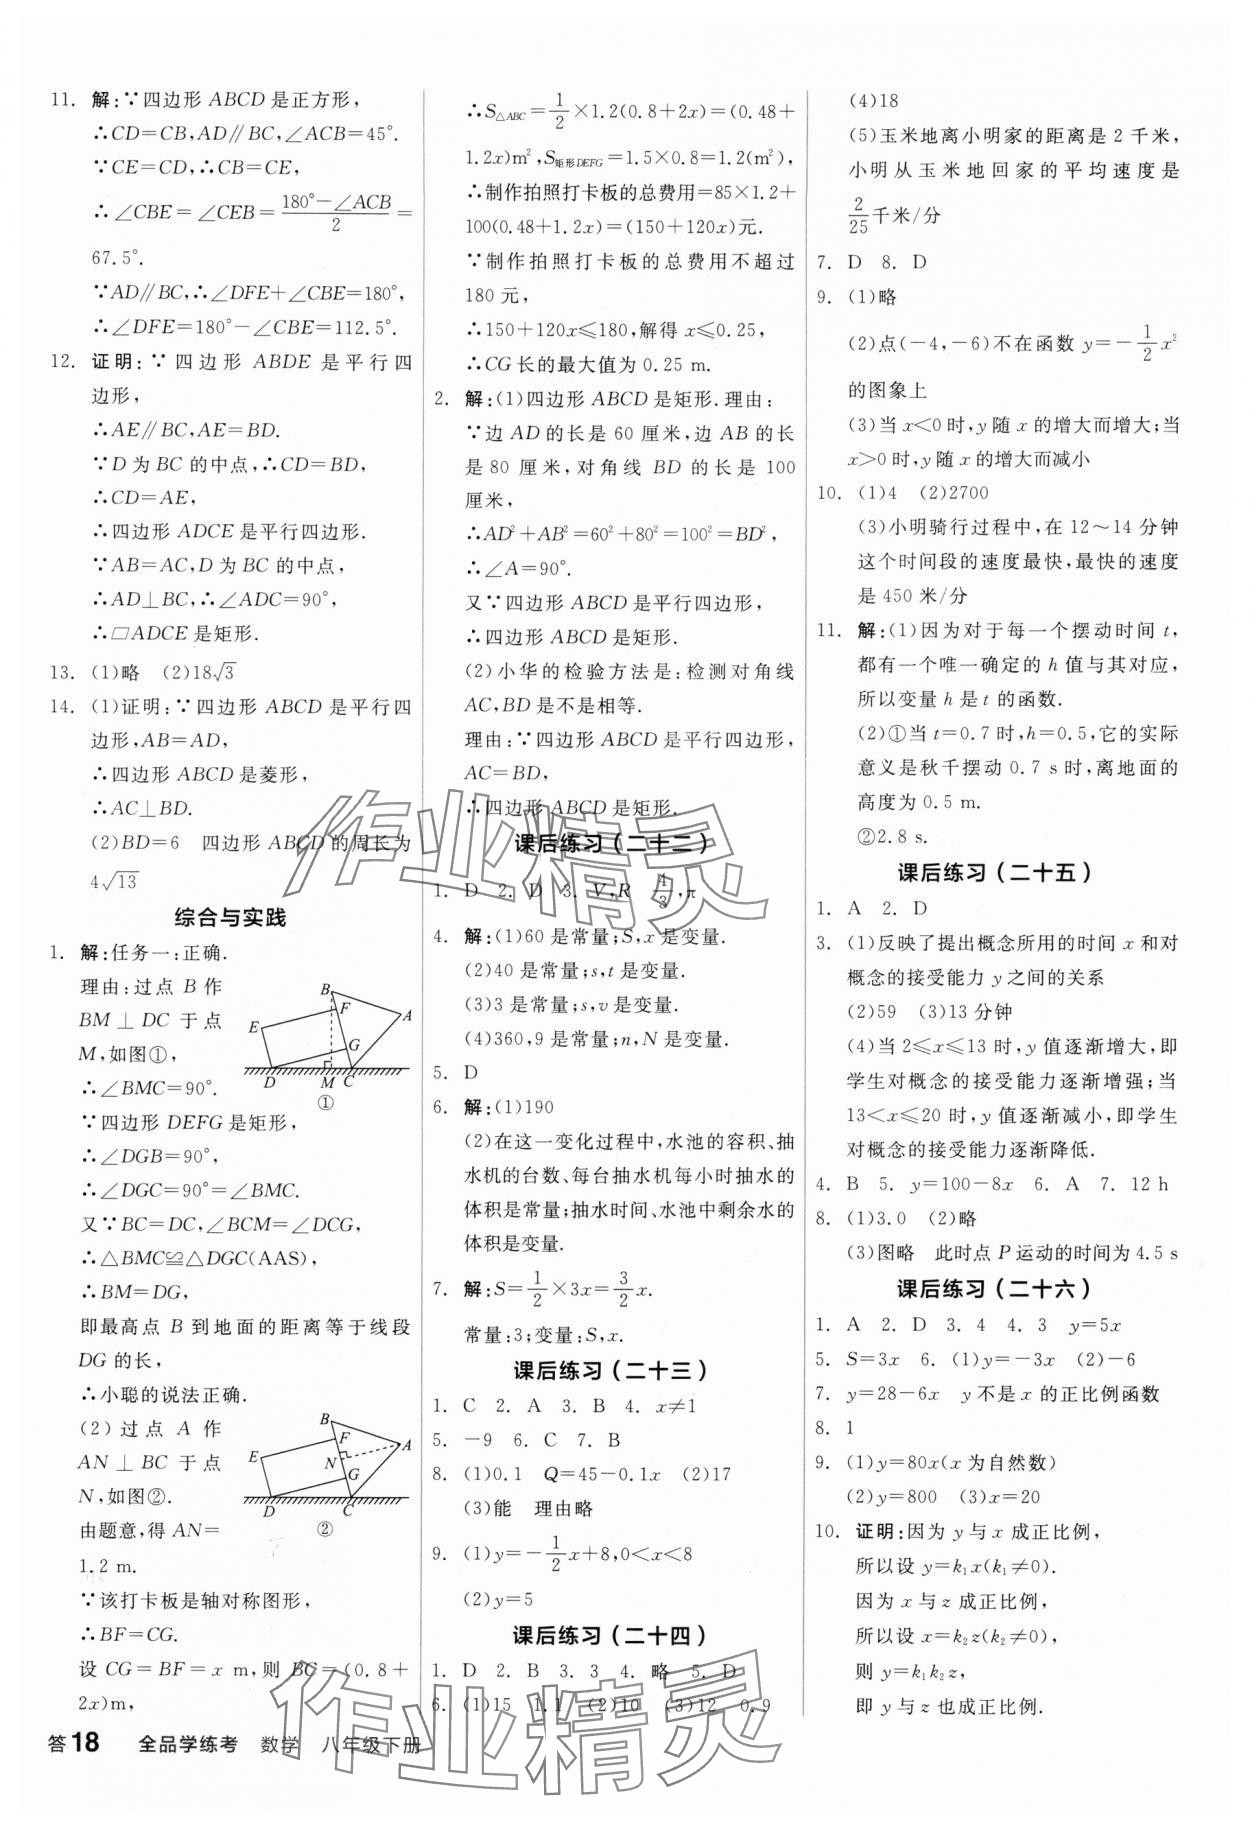 11. 解:∵四边形 ABCD 是正方形,
∴CD=CB,AD∥BC,∠ACB=45°.
∵CE=CD,∴CB=CE,
∴∠CBE=∠CEB=\frac{180°-∠ACB}{2}=
67.5°.
∵AD∥BC,∴∠DFE+∠CBE=180°,
∴∠DFE=180°-∠CBE=112.5°.
12. 证明:∵四边形 ABDE 是平行四
边形,
∴AE∥BC,AE=BD.
∵D 为 BC 的中点,∴CD=BD,
∴CD=AE,
∴四边形 ADCE 是平行四边形.
∵AB=AC,D 为 BC 的中点,
∴AD⊥BC,∴∠ADC=90°,
∴▱ADCE 是矩形.
13. (1)略 (2)18√3
14. (1)证明:∵四边形 ABCD 是平行四
边形,AB=AD,
∴四边形 ABCD 是菱形,
∴AC⊥BD.
(2)BD=6 四边形 ABCD 的周长为
4√13
综合与实践
1. 解:任务一:正确.
理由:过点 B 作
BM⊥DC 于点
M,如图①,
∴∠BMC=90°.
∵四边形 DEFG 是矩形,
∴∠DGB=90°,
∴∠DGC=90°=∠BMC.
又∵BC=DC,∠BCM=∠DCG,
∴△BMC≌△DGC(AAS),
∴BM=DG,
即最高点 B 到地面的距离等于线段
DG 的长,
∴小聪的说法正确.
(2)过点 A 作
AN⊥BC 于点
N,如图②.
由题意,得 AN=
1.2 m.
∵该打卡板是轴对称图形,
∴BF=CG.
设 CG=BF=x m,则 BC=(0.8+
2x)m,
B
F
A
E
G
D
M
C
①
B
F
A
E
N
G
D
C
②
∴S△ABC=\frac{1}{2}×1.2(0.8+2x)=(0.48+
1.2x)m²,S矩形DEFG=1.5×0.8=1.2(m²),
∴制作拍照打卡板的总费用=85×1.2+
100(0.48+1.2x)=(150+120x)元.
∵制作拍照打卡板的总费用不超过
180 元,
∴150+120x≤180,解得 x≤0.25,
∴CG 长的最大值为 0.25 m.
2. 解:(1)四边形 ABCD 是矩形.理由:
∵边 AD 的长是 60 厘米,边 AB 的长
是 80 厘米,对角线 BD 的长是 100
厘米,
∴AD²+AB²=60²+80²=100²=BD²,
∴∠A=90°.
又∵四边形 ABCD 是平行四边形,
∴四边形 ABCD 是矩形.
(2)小华的检验方法是:检测对角线
AC,BD 是不是相等.
理由:∵四边形 ABCD 是平行四边形,
AC=BD,
∴四边形 ABCD 是矩形.
课后练习(二十二)
1. D 2. D 3. V,R \frac{4}{3},π
4. 解:(1)60 是常量;S,x 是变量.
(2)40 是常量;s,t 是变量.
(3)3 是常量;s,v 是变量.
(4)360,9 是常量;n,N 是变量.
5. D
6. 解:(1)190
(2)在这一变化过程中,水池的容积、抽
水机的台数、每台抽水机每小时抽水的
体积是常量;抽水时间、水池中剩余水的
体积是变量.
7. 解:S=\frac{1}{2}×3x=\frac{3}{2}x.
常量:3;变量:S,x.
课后练习(二十三)
1. C 2. A 3. B 4. x≠1
5. -9 6. C 7. B
8. (1)0.1 Q=45-0.1x (2)17
(3)能 理由略
9. (1)y=-\frac{1}{2}x+8,0<x<8
(2)y=5
课后练习(二十四)
1. D 2. B 3. 3 4. 略 5. D
6. (1)15 1.1 (2)10 (3)12 0.9
(4)18
(5)玉米地离小明家的距离是 2 千米,
小明从玉米地回家的平均速度是
\frac{2}{25}千米/分
7. D 8. D
9. (1)略
(2)点(-4,-6)不在函数 y=-\frac{1}{2}x²
的图象上
(3)当 x<0 时,y 随 x 的增大而增大;当
x>0 时,y 随 x 的增大而减小
10. (1)4 (2)2700
(3)小明骑行过程中,在 12~14 分钟
这个时间段的速度最快,最快的速度
是 450 米/分
11. 解:(1)因为对于每一个摆动时间 t,
都有一个唯一确定的 h 值与其对应,
所以变量 h 是 t 的函数.
(2)①当 t=0.7 时,h=0.5,它的实际
意义是秋千摆动 0.7 s 时,离地面的
高度为 0.5 m.
②2.8 s.
课后练习(二十五)
1. A 2. D
3. (1)反映了提出概念所用的时间 x 和对
概念的接受能力 y 之间的关系
(2)59 (3)13 分钟
(4)当 2≤x≤13 时,y 值逐渐增大,即
学生对概念的接受能力逐渐增强;当
13<x≤20 时,y 值逐渐减小,即学生
对概念的接受能力逐渐降低.
4. B 5. y=100-8x 6. A 7. 12 h
8. (1)3.0 (2)略
(3)图略 此时点 P 运动的时间为 4.5 s
课后练习(二十六)
1. A 2. D 3. 4 4. 3 y=5x
5. S=3x 6. (1)y=-3x (2)-6
7. y=28-6x y 不是 x 的正比例函数
8. 1
9. (1)y=80x(x 为自然数)
(2)y=800 (3)x=20
10. 证明:因为 y 与 x 成正比例,
所以设 y=k₁x(k₁≠0).
因为 x 与 z 成正比例,
所以设 x=k₂z(k₂≠0),
则 y=k₁k₂z,
即 y 与 z 也成正比例.
作业精灵
作业精灵
答18 全品学练考 数学 八年级下册